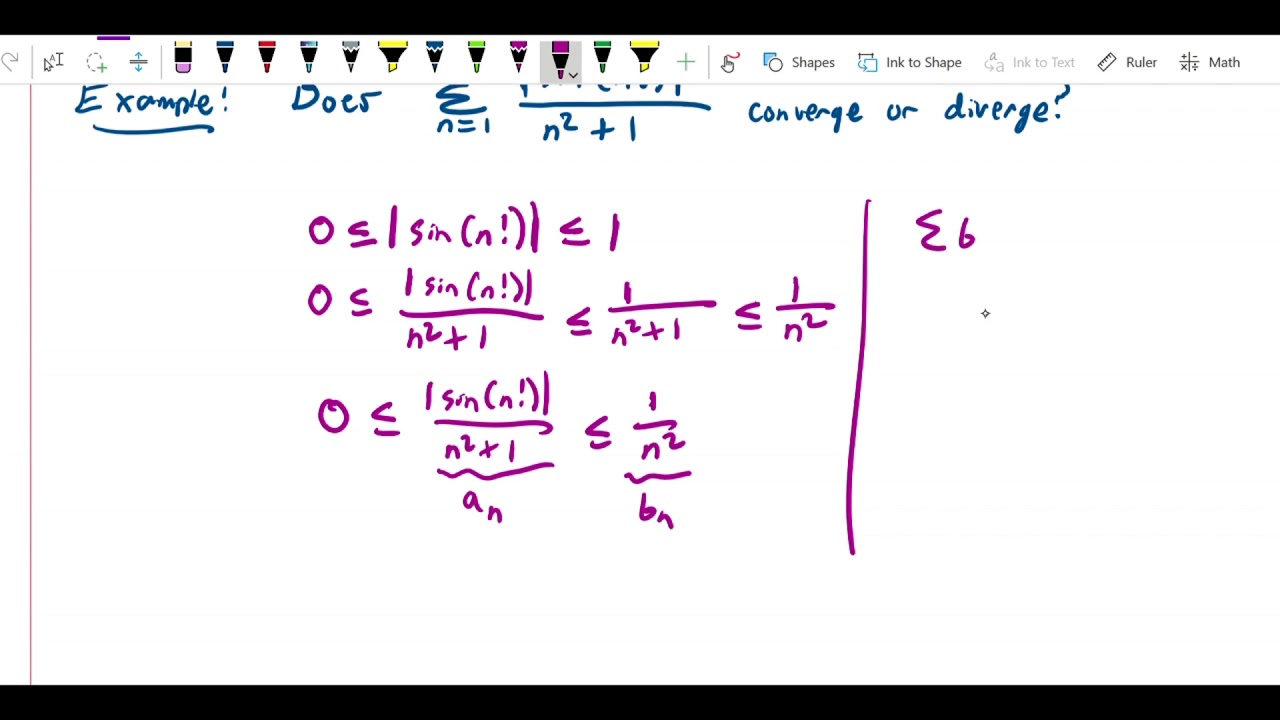 Shapes Ink to Shape Ink to Text Ruler Math
Example! Does ∑ n=1 n² + 1 converge or diverge?
0 ≤ |sin(n!)| ≤ 1
0 ≤ |sin(n!)| / n² + 1 ≤ 1 / n² + 1 ≤ 1 / n²
0 ≤ |sin(n!)| / n² + 1 ≤ 1 / n²
aₙ bₙ
∑ b